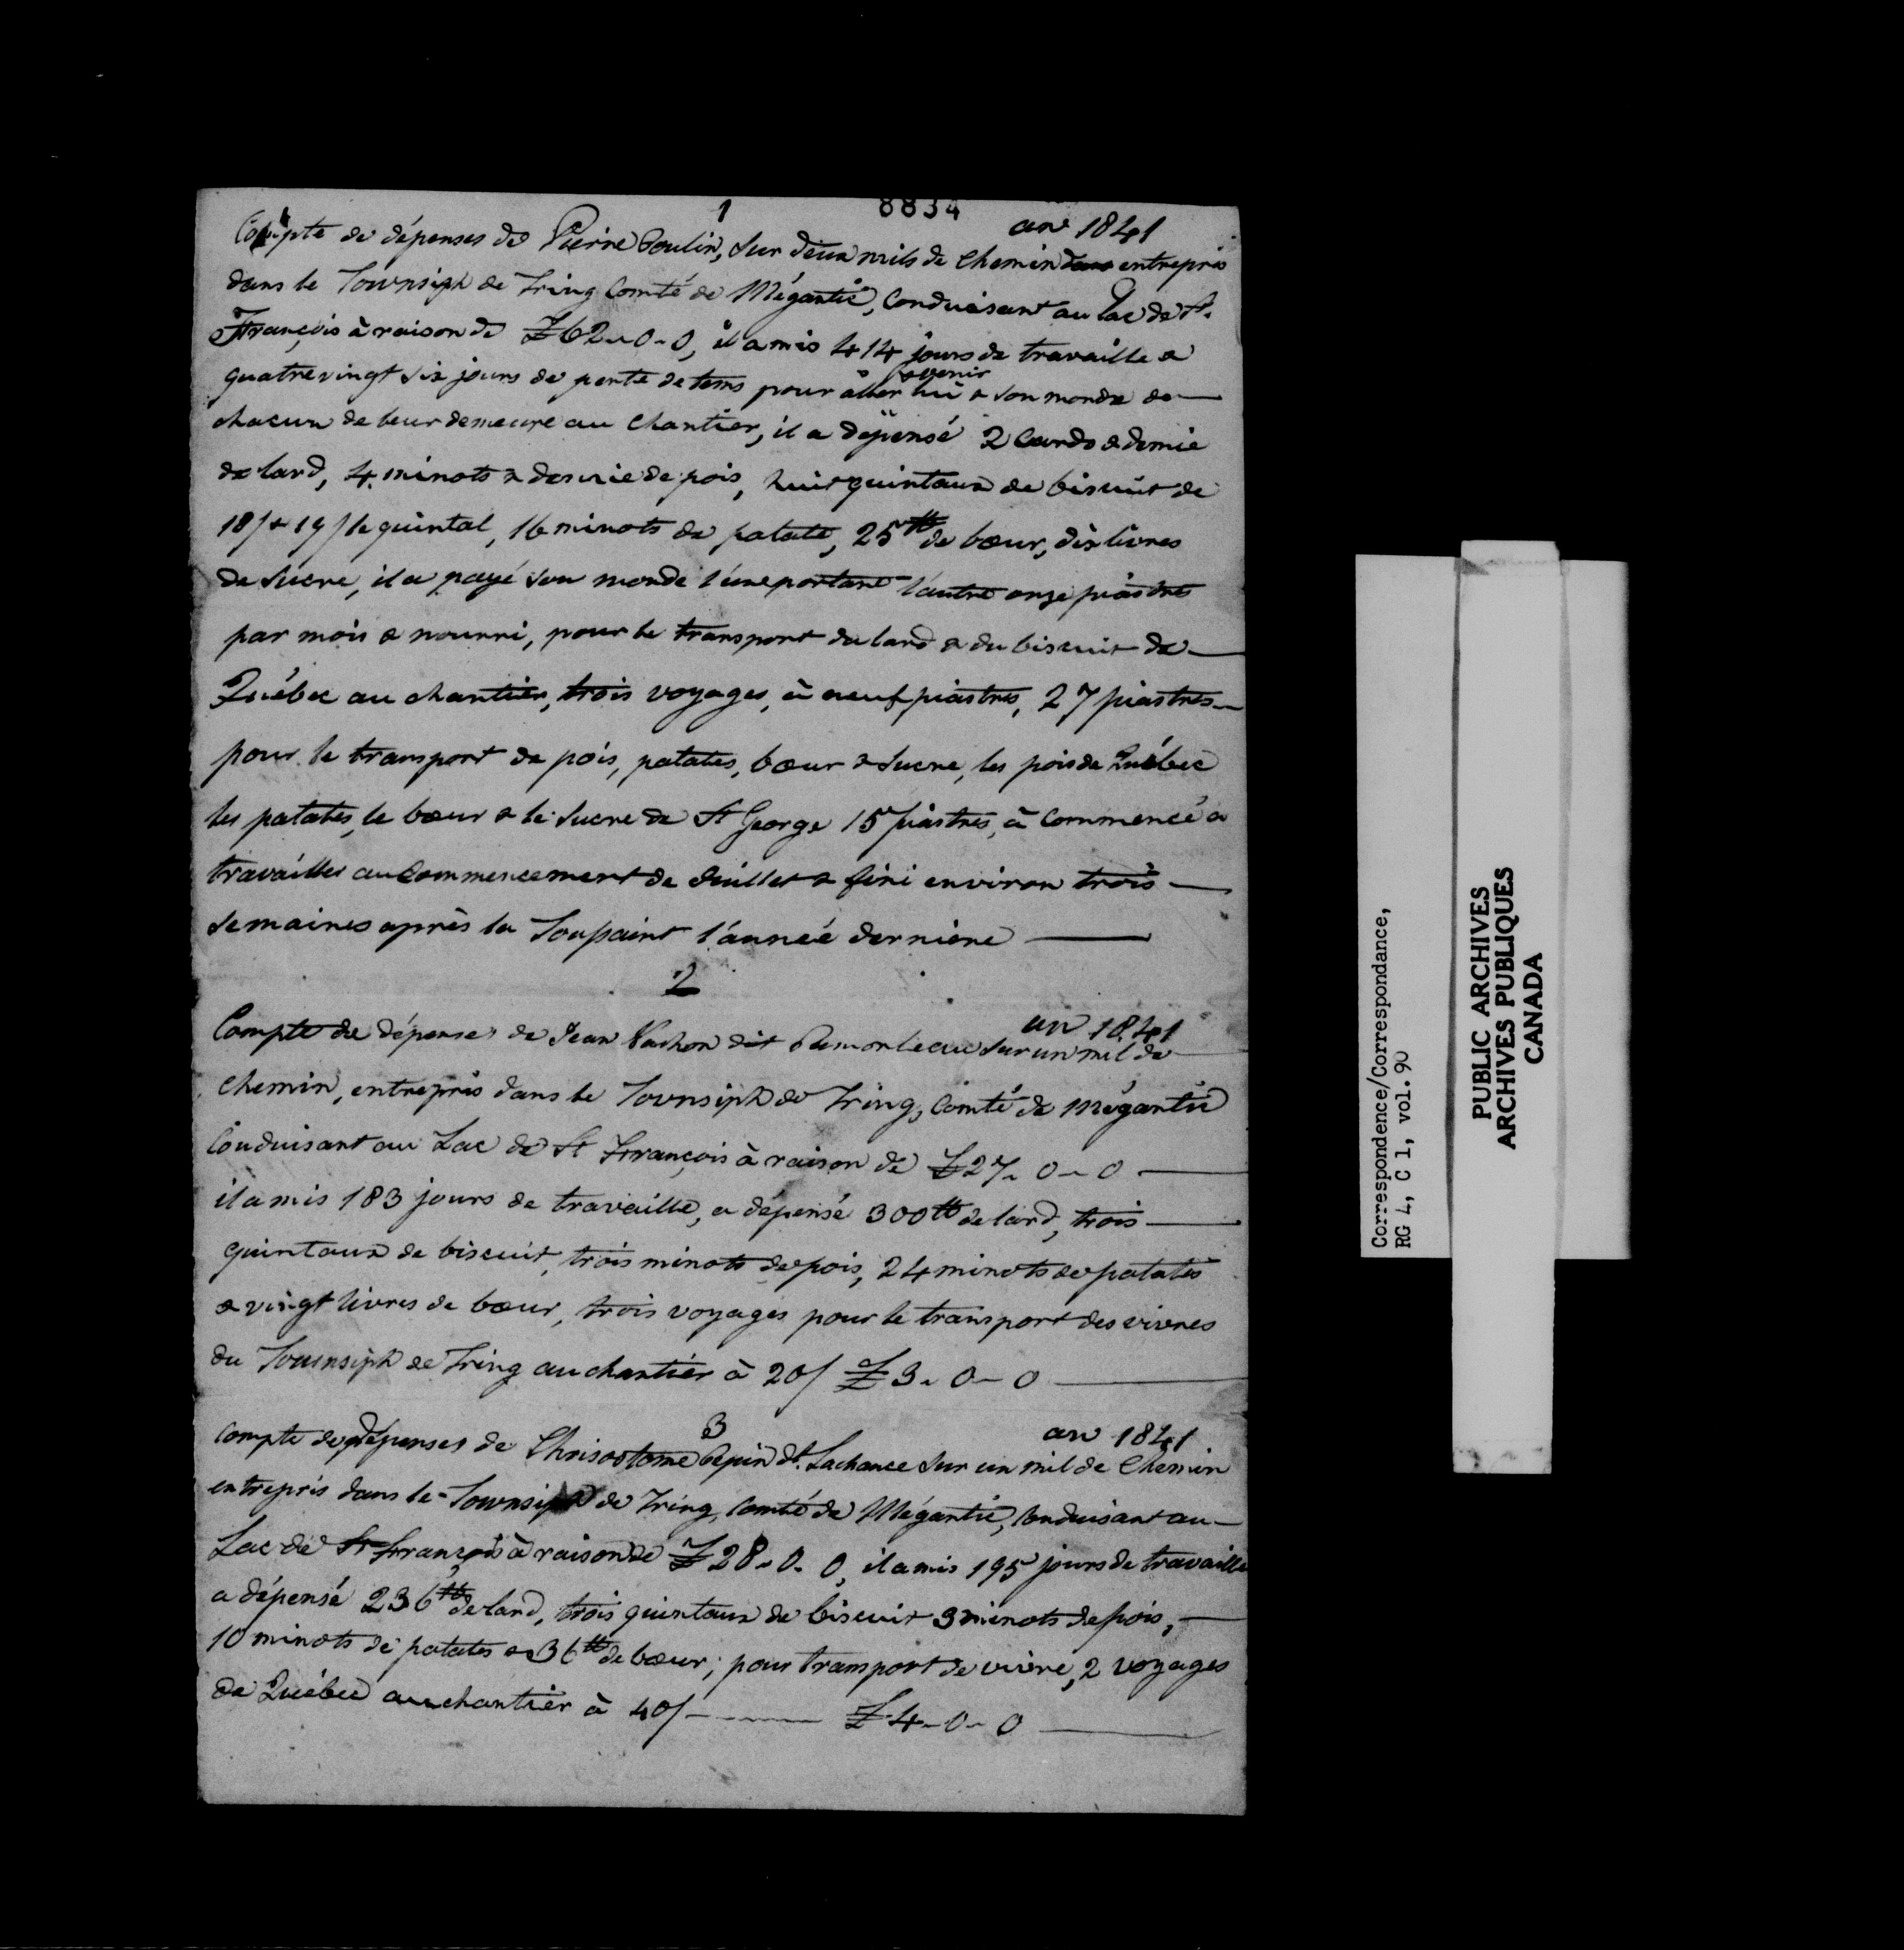 1 8834 an 1841
Compte de dépenses de Pierre Poulin, sur deux mils de chemin dans entrepris
dans le Townsiph de Tring Comté de Mégantic, Conduisant au Lac de St.
François à raison de £62-0-0, il a mis 414 jours de travaille &
& venir
quatrevingt six jours de perte de tems pour aller lui & son monde de
chacun de leur demeure au Chantier, il a dépensé 2 cards & demie
de lard, 4 minots & demie de pois, huit quintaux de biscuit de
18/ & 19/ le quintal, 16 minots de patate, 25 lb de bœur, dix livres
de sucre, il a payé son monde l'une portant l'autre onze piastres
par mois & nourri, pour le transport du lard & du biscuit de
Québec au chantier, trois voyages, à neuf piastres, 27 piastres
pour le transport de pois, patates, bœur & sucre, les pois de Québec
les patates, le bœur & le sucre de St George 15 piastres, à commencé a
travailler au Commencement de Juillet & fini environ trois
semaines après la Toussaint l'année dernière
2
an 1841
Compte de dépenses de Jean Vachon dit Pomerleau sur un mil de
chemin, entrepris dans le Townsiph de Tring, Comté de Mégantic
Conduisant au Lac de St François à raison de £27-0-0
il a mis 183 jours de travaille, a dépensé 300 lb de lard, trois
quintaux de biscuit, trois minots de pois, 24 minots de patates
& vingt livres de bœur, trois voyages pour le transport des vivres
du Townsiph de Tring au chantier à 20/ £3-0-0
3 an 1841
Compte de dépenses de Chrisostome Pepin dt. Lachance sur un mil de Chemin
entrepris dans le Townsiph de Tring, Comté de Mégantic, Conduisant au
Lac de St François à raison de £28-0-0, il a mis 195 jours de travaille
a dépensé 236 lb de lard, trois quintaux de biscuit 3 minots de pois,
10 minots de patates & 36 lb de bœur; pour transport de vivre, 2 voyages
de Québec au chantier à 40/ £4-0-0
Correspondence/Correspondance,
RG 4, C 1, vol. 90
PUBLIC ARCHIVES
ARCHIVES PUBLIQUES
CANADA